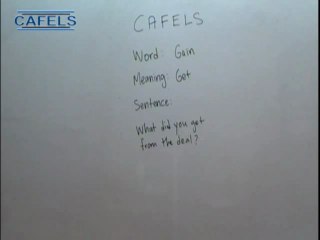 CAFELS
CAFELS
Word: Gain
Meaning: Get
Sentence:
What did you get
from the deal?